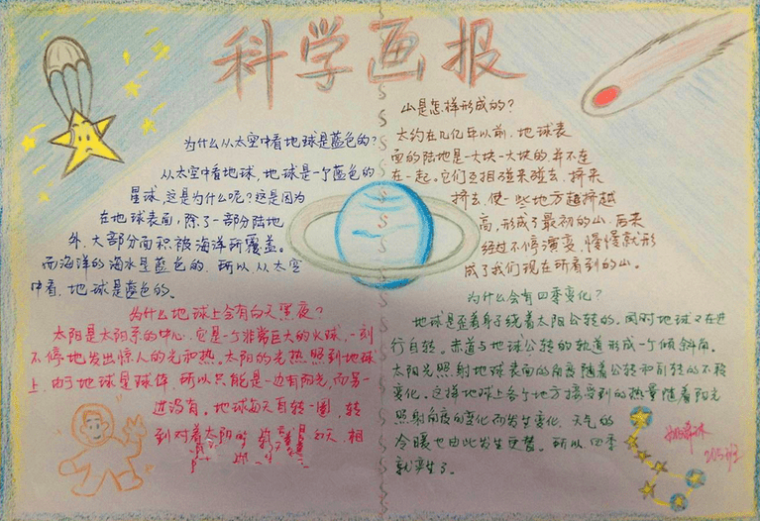 科学画报
为什么从太空中看地球是蓝色的?
从太空中看地球,地球是一个蓝色的
星球,这是为什么呢?这是因为
在地球表面,除了一部分陆地
外,大部分面积被海洋所覆盖。
而海洋的海水是蓝色的,所以,从太空
中看,地球是蓝色的。
为什么地球上会有白天黑夜?
太阳是太阳系的中心,它是一个非常巨大的火球,一刻
不停地发出惊人的光和热。太阳的光热照到地球
上,由于地球是球体,所以只能是一边有阳光,而另一
边没有。地球每天自转一圈,转
到对着太阳的 是白天,相
山是怎样形成的?
大约在几亿年以前,地球表
面的陆地是一大块一大块的,并不连
在一起,它们互相碰来碰去,挤来
挤去,使一些地方越挤越
高,形成了最初的山,后来
经过不停演变,慢慢就形
成了我们现在所看到的山。
为什么会有四季变化?
地球是歪着身子绕着太阳公转的。同时地球又在进
行自转。赤道与地球公转的轨道形成一个倾斜角。
太阳光照射地球表面的角度随着公转和自转的不停
变化。这样地球上各个地方接受到的热量随着阳光
照射角度的变化而发生变化,天气的
冷暖也由此发生更替。所以四季
就产生了。